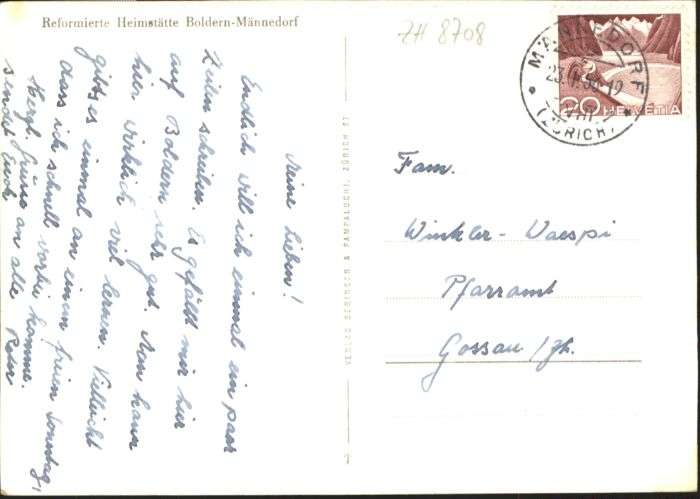 Reformierte Heimstätte Boldern-Männedorf
ZH 8708
MÄNNEDORF
(ZÜRICH)
20 HELVETIA
Meine Lieben!
Endlich will ich einmal ein paar
Zeilen schreiben. Es gefällt mir hier
auf Boldern sehr gut. Man kann
hier wirklich viel lernen. Vielleicht
gibt es einmal an einen freien Sonntag,
dass ich schnell vorbei komme.
Herzl. Grüsse an alle
sendet Euch
VERLAG BERINGER & PAMPALUCHI, ZÜRICH 57
Fam.
Winkler-Waespi
Pfarramt
Gossau/Zh.